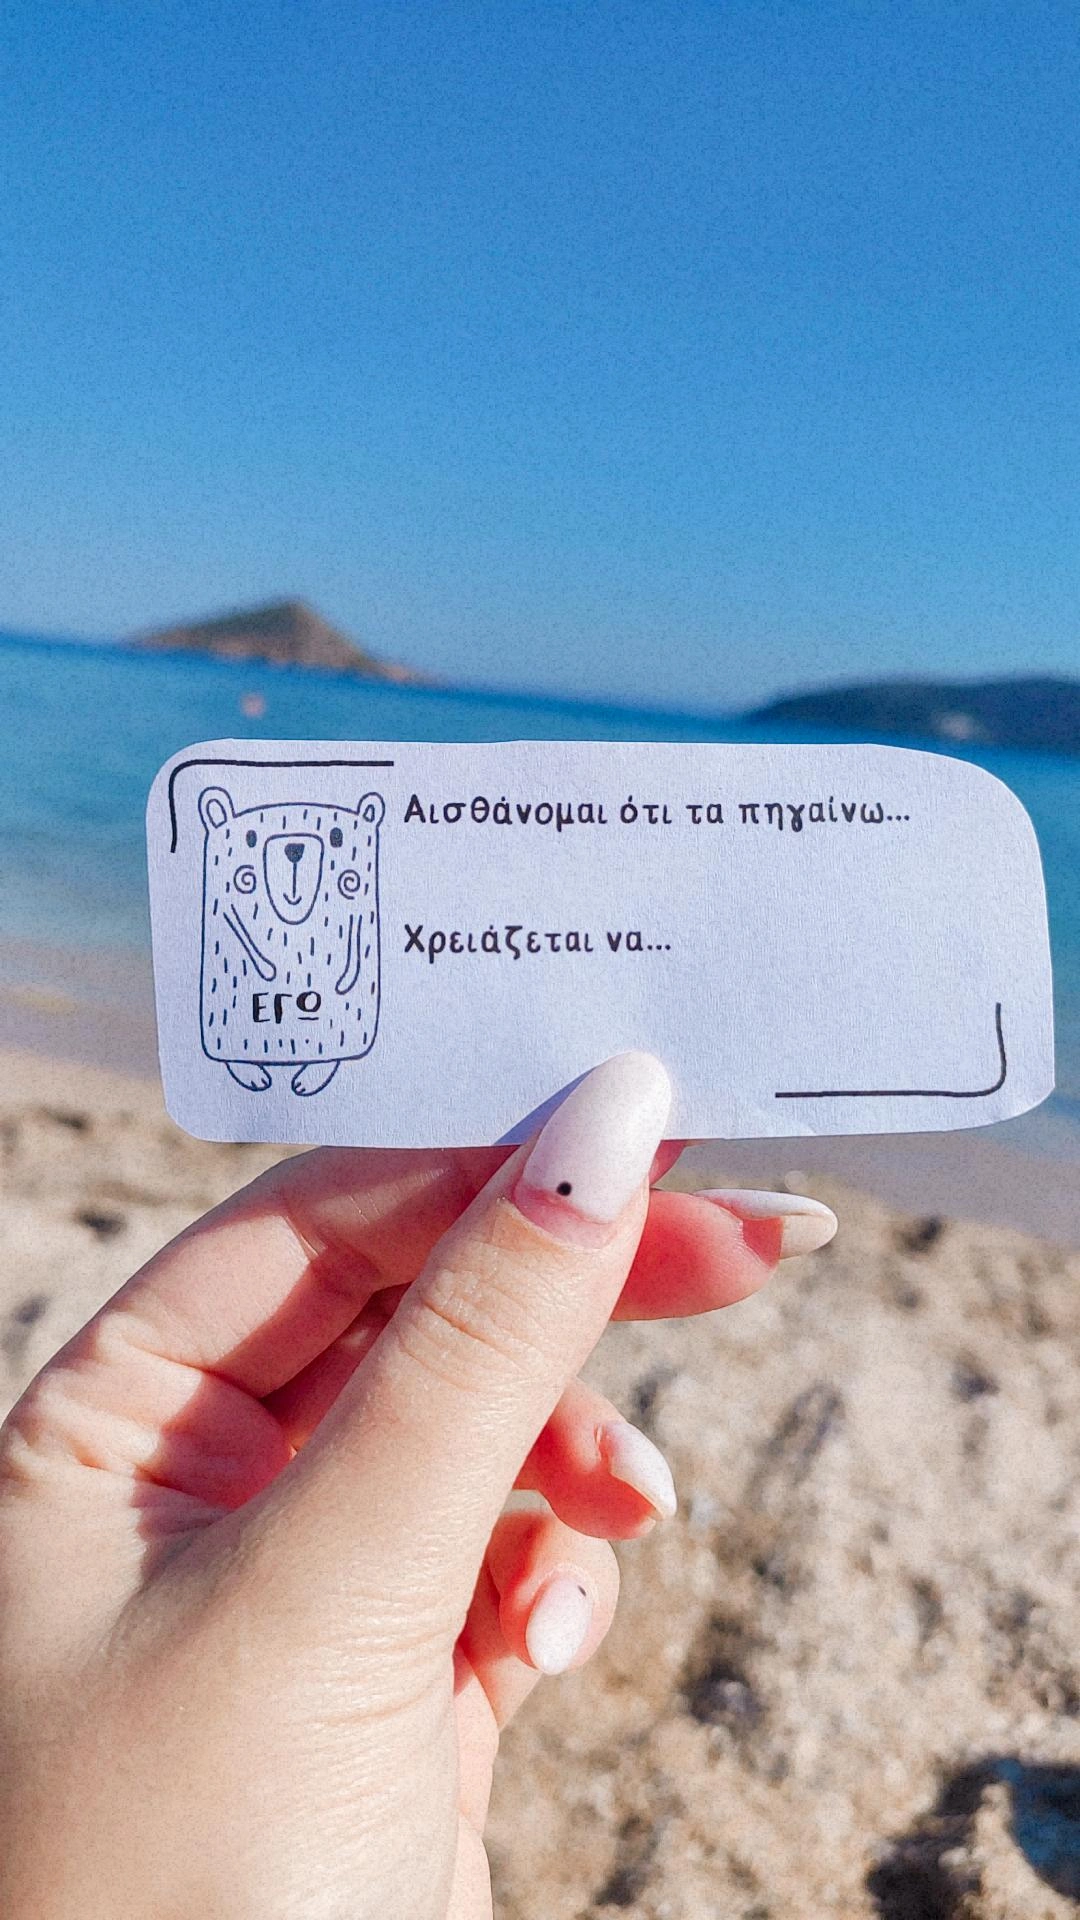 Αισθάνομαι ότι τα πηγαίνω...
Χρειάζεται να...
ΕΓΩ